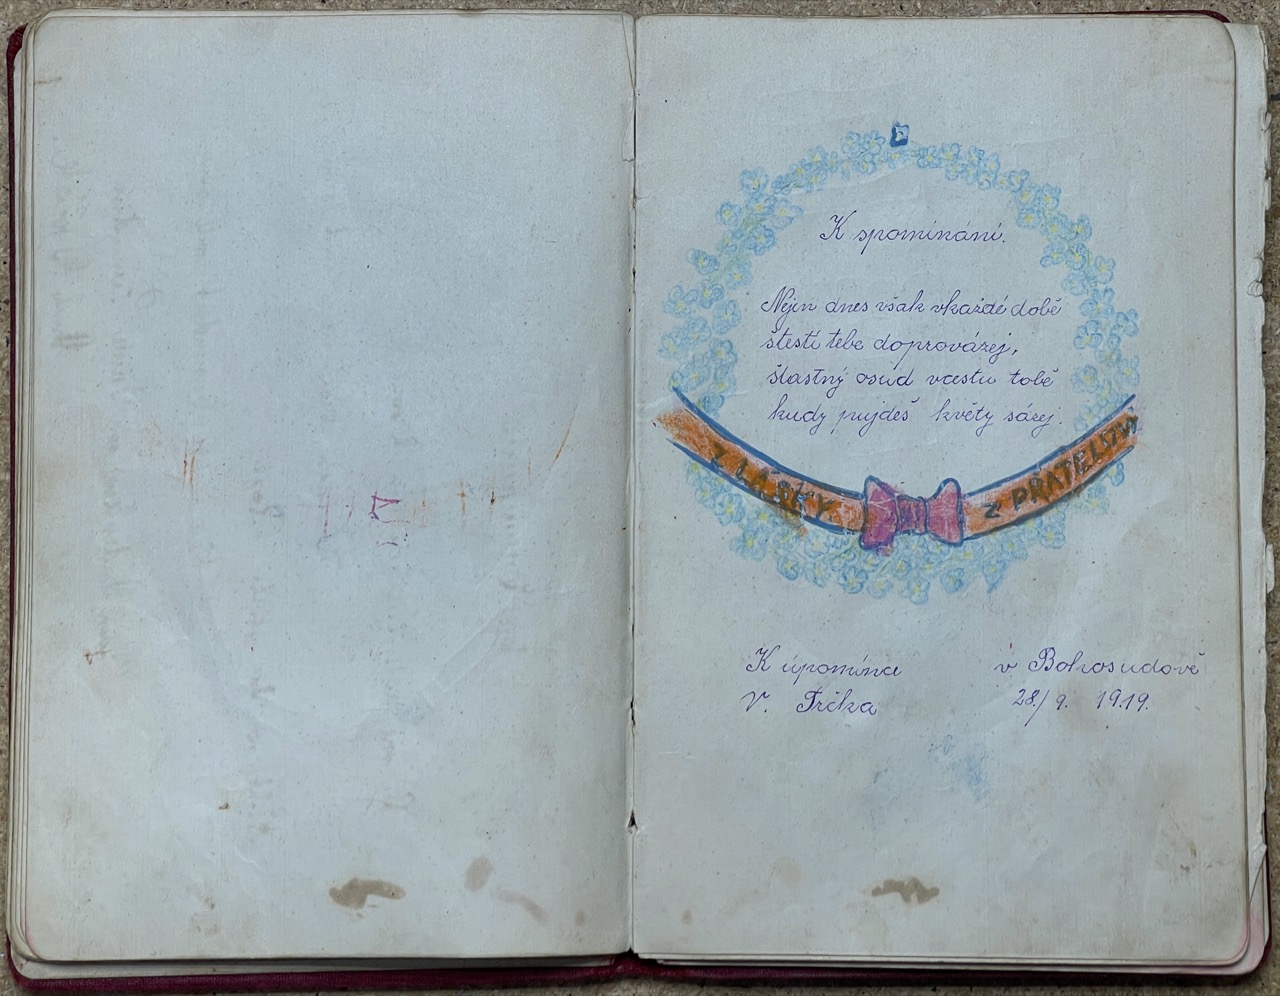 K spomínání.
Nejen dnes však vkaždé době
štestí tebe doprovázej,
šťastný osud vcestu tobě
kudy pujdeš květy sázej.
Z LÁSKY
Z PŘÁTELSTVÍ
K úpomínce
v Bohosudově
V. Trčka
28./9. 1919.